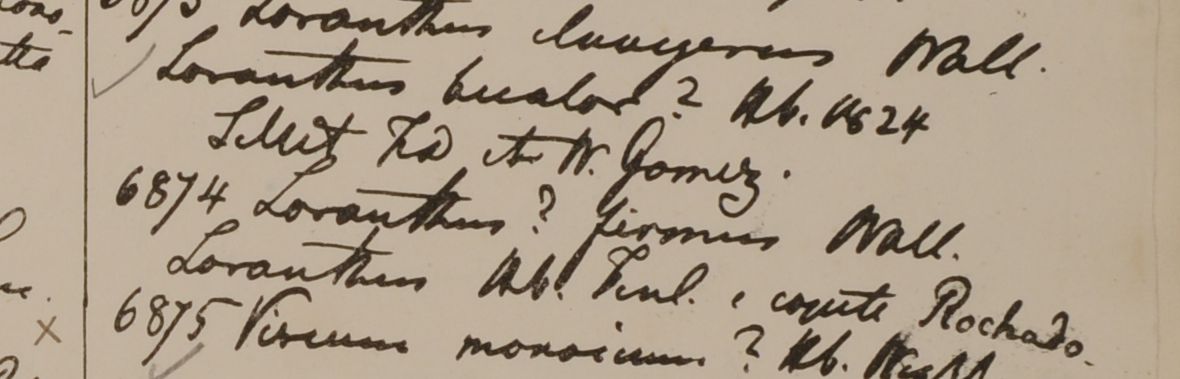 Loranthus Wall.
Loranthus bicolor? Hb. 1824
Sillet Fd et W. Gomez.
6874 Loranthus? firmus Wall.
Loranthus Hb. Finl. e Rochado.
6875 Viscum monoicum? Hb. Wight